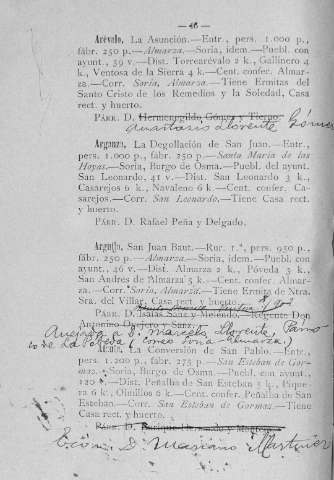 — 46 —
Arévalo. La Asunción.—Entr., pers. 1.000 p.,
fábr. 250 p.—Almarza.—Soria, idem.—Puebl. con
ayunt., 39 v.—Dist. Torrearévalo 2 k., Gallinero 4
k., Ventosa de la Sierra 4 k.—Cent. confer. Almar-
za.—Corr. Soria, Almarza.—Tiene Ermitas del
Santo Cristo de los Remedios y la Soledad, Casa
rect. y huerto.
PÁRR. D. Hermenegildo Gómez y Tierno
Anastasio Llorente Gómez
Arganza. La Degollación de San Juan.—Entr.,
pers. 1.000 p., fábr. 250 p.—Santa María de las
Hoyas.—Soria, Burgo de Osma.—Puebl. del ayunt.
San Leonardo, 41 v.—Dist. San Leonardo 3 k.,
Casarejos 6 k., Navaleno 6 k.—Cent. confer. Ca-
sarejos.—Corr. San Leonardo.—Tiene Casa rect.
y huerto.
PÁRR. D. Rafael Peña y Delgado.
Arguijo. San Juan Baut.—Rur. 1.ª, pers. 950 p.,
fábr. 250 p.—Almarza.—Soria, idem.—Puebl. con
ayunt., 46 v.—Dist. Almarza 2 k., Póveda 3 k.,
San Andrés de Almarza 5 k.—Cent. confer. Almarza.
—Corr. Soria, Almarza.—Tiene Ermita de Ntra.
Sra. del Villar, Casa rect. y huerto.
PÁRR. D. Isaías Sanz y Meléndez.—Regente Don
Antonino y Sanz.
D. Marcelo Llorente, Párro-
co de La Póveda (correo Soria-Almarza.)
Atauta. La Conversión de San Pablo.—Entr.,
pers. 1.200 p., fábr. 275 p.—San Esteban de Gor-
maz.—Soria, Burgo de Osma.—Puebl. con ayunt.,
120 v.—Dist. Peñalba de San Esteban 3 k., Pique-
ra 6 k., Olmillos 6 k.—Cent. confer. Peñalba de San
Esteban.—Corr. San Esteban de Gormaz.—Tiene
Casa rect. y huerto.
PÁRR. D. Enrique
Ecón. D. Mariano Martínez